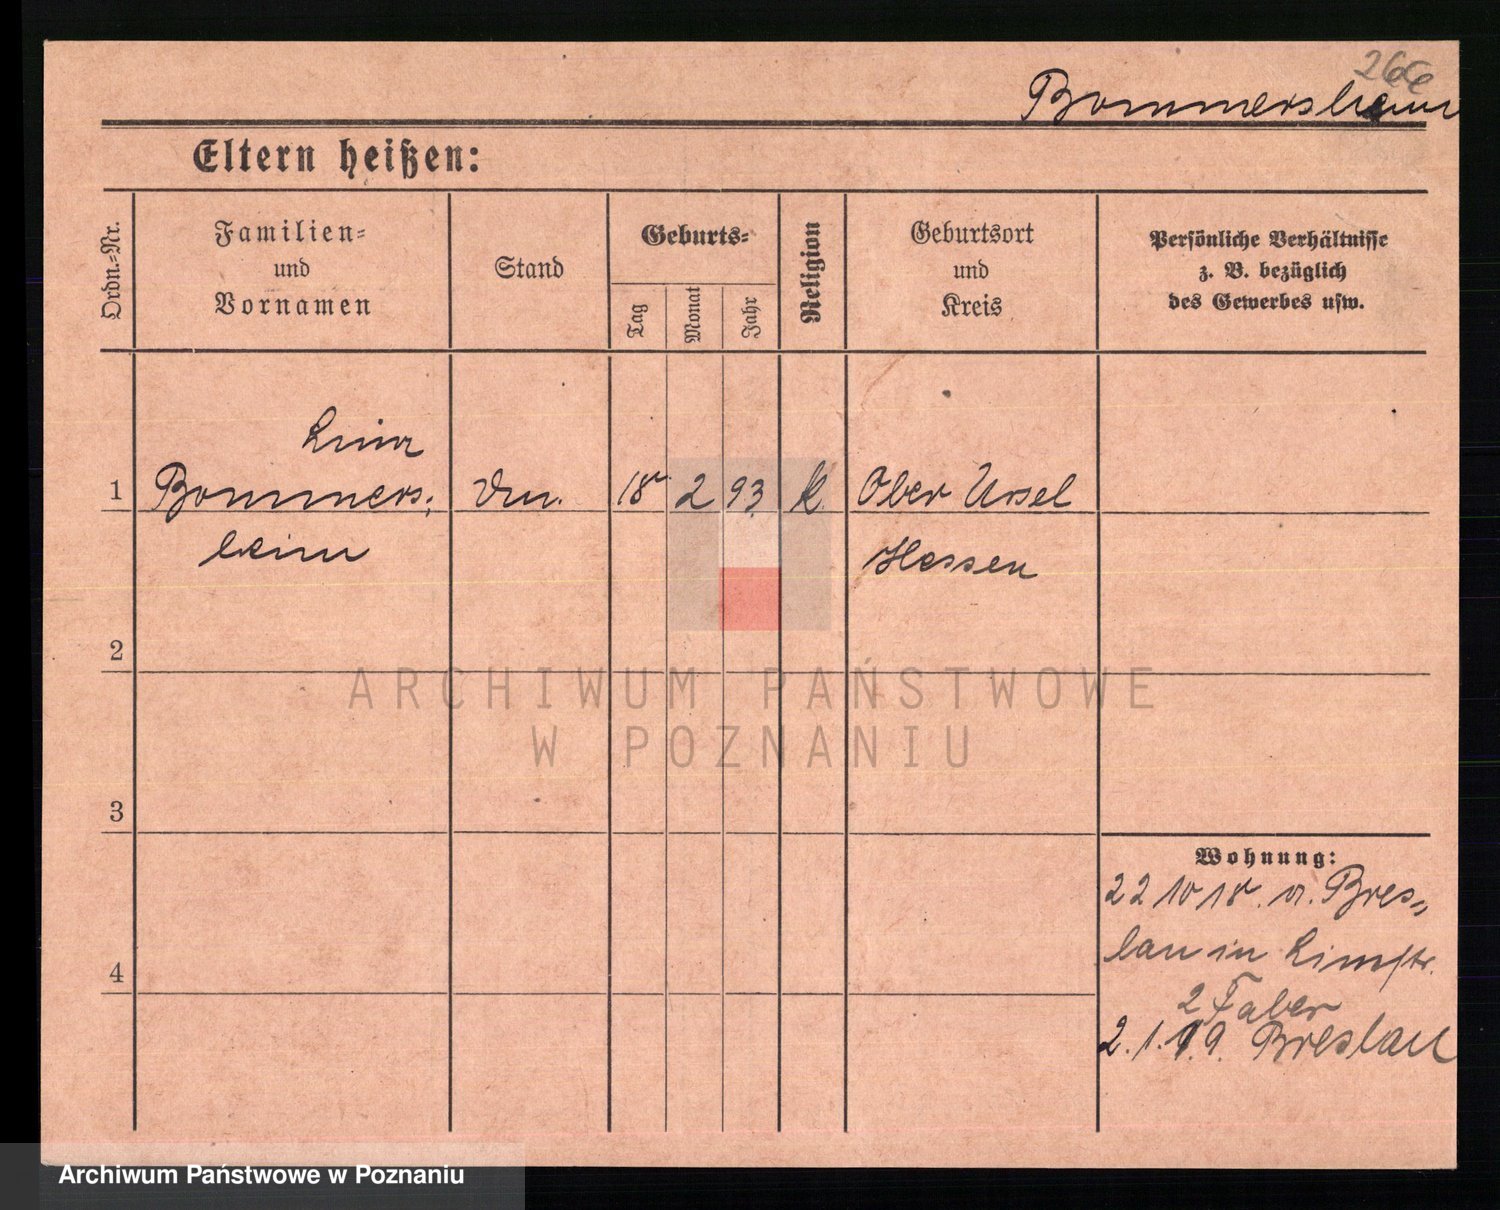 266
Bommersheim
Eltern heißen:
Ordn.-Nr.
Familien-
und
Vornamen
Stand
Geburts-
Tag
Monat
Jahr
Religion
Geburtsort
und
Kreis
Persönliche Verhältnisse
z. B. bezüglich
des Gewerbes usw.
Lina
1 Bommers- 18 2 93 k. Ober Ursel
heim Hessen
2
3
4
Wohnung:
22 10 18. a. Bres-
lau in Linnstr.
2 Faber
2.1.19. Breslau
ARCHIWUM PAŃSTWOWE
W POZNANIU
Archiwum Państwowe w Poznaniu